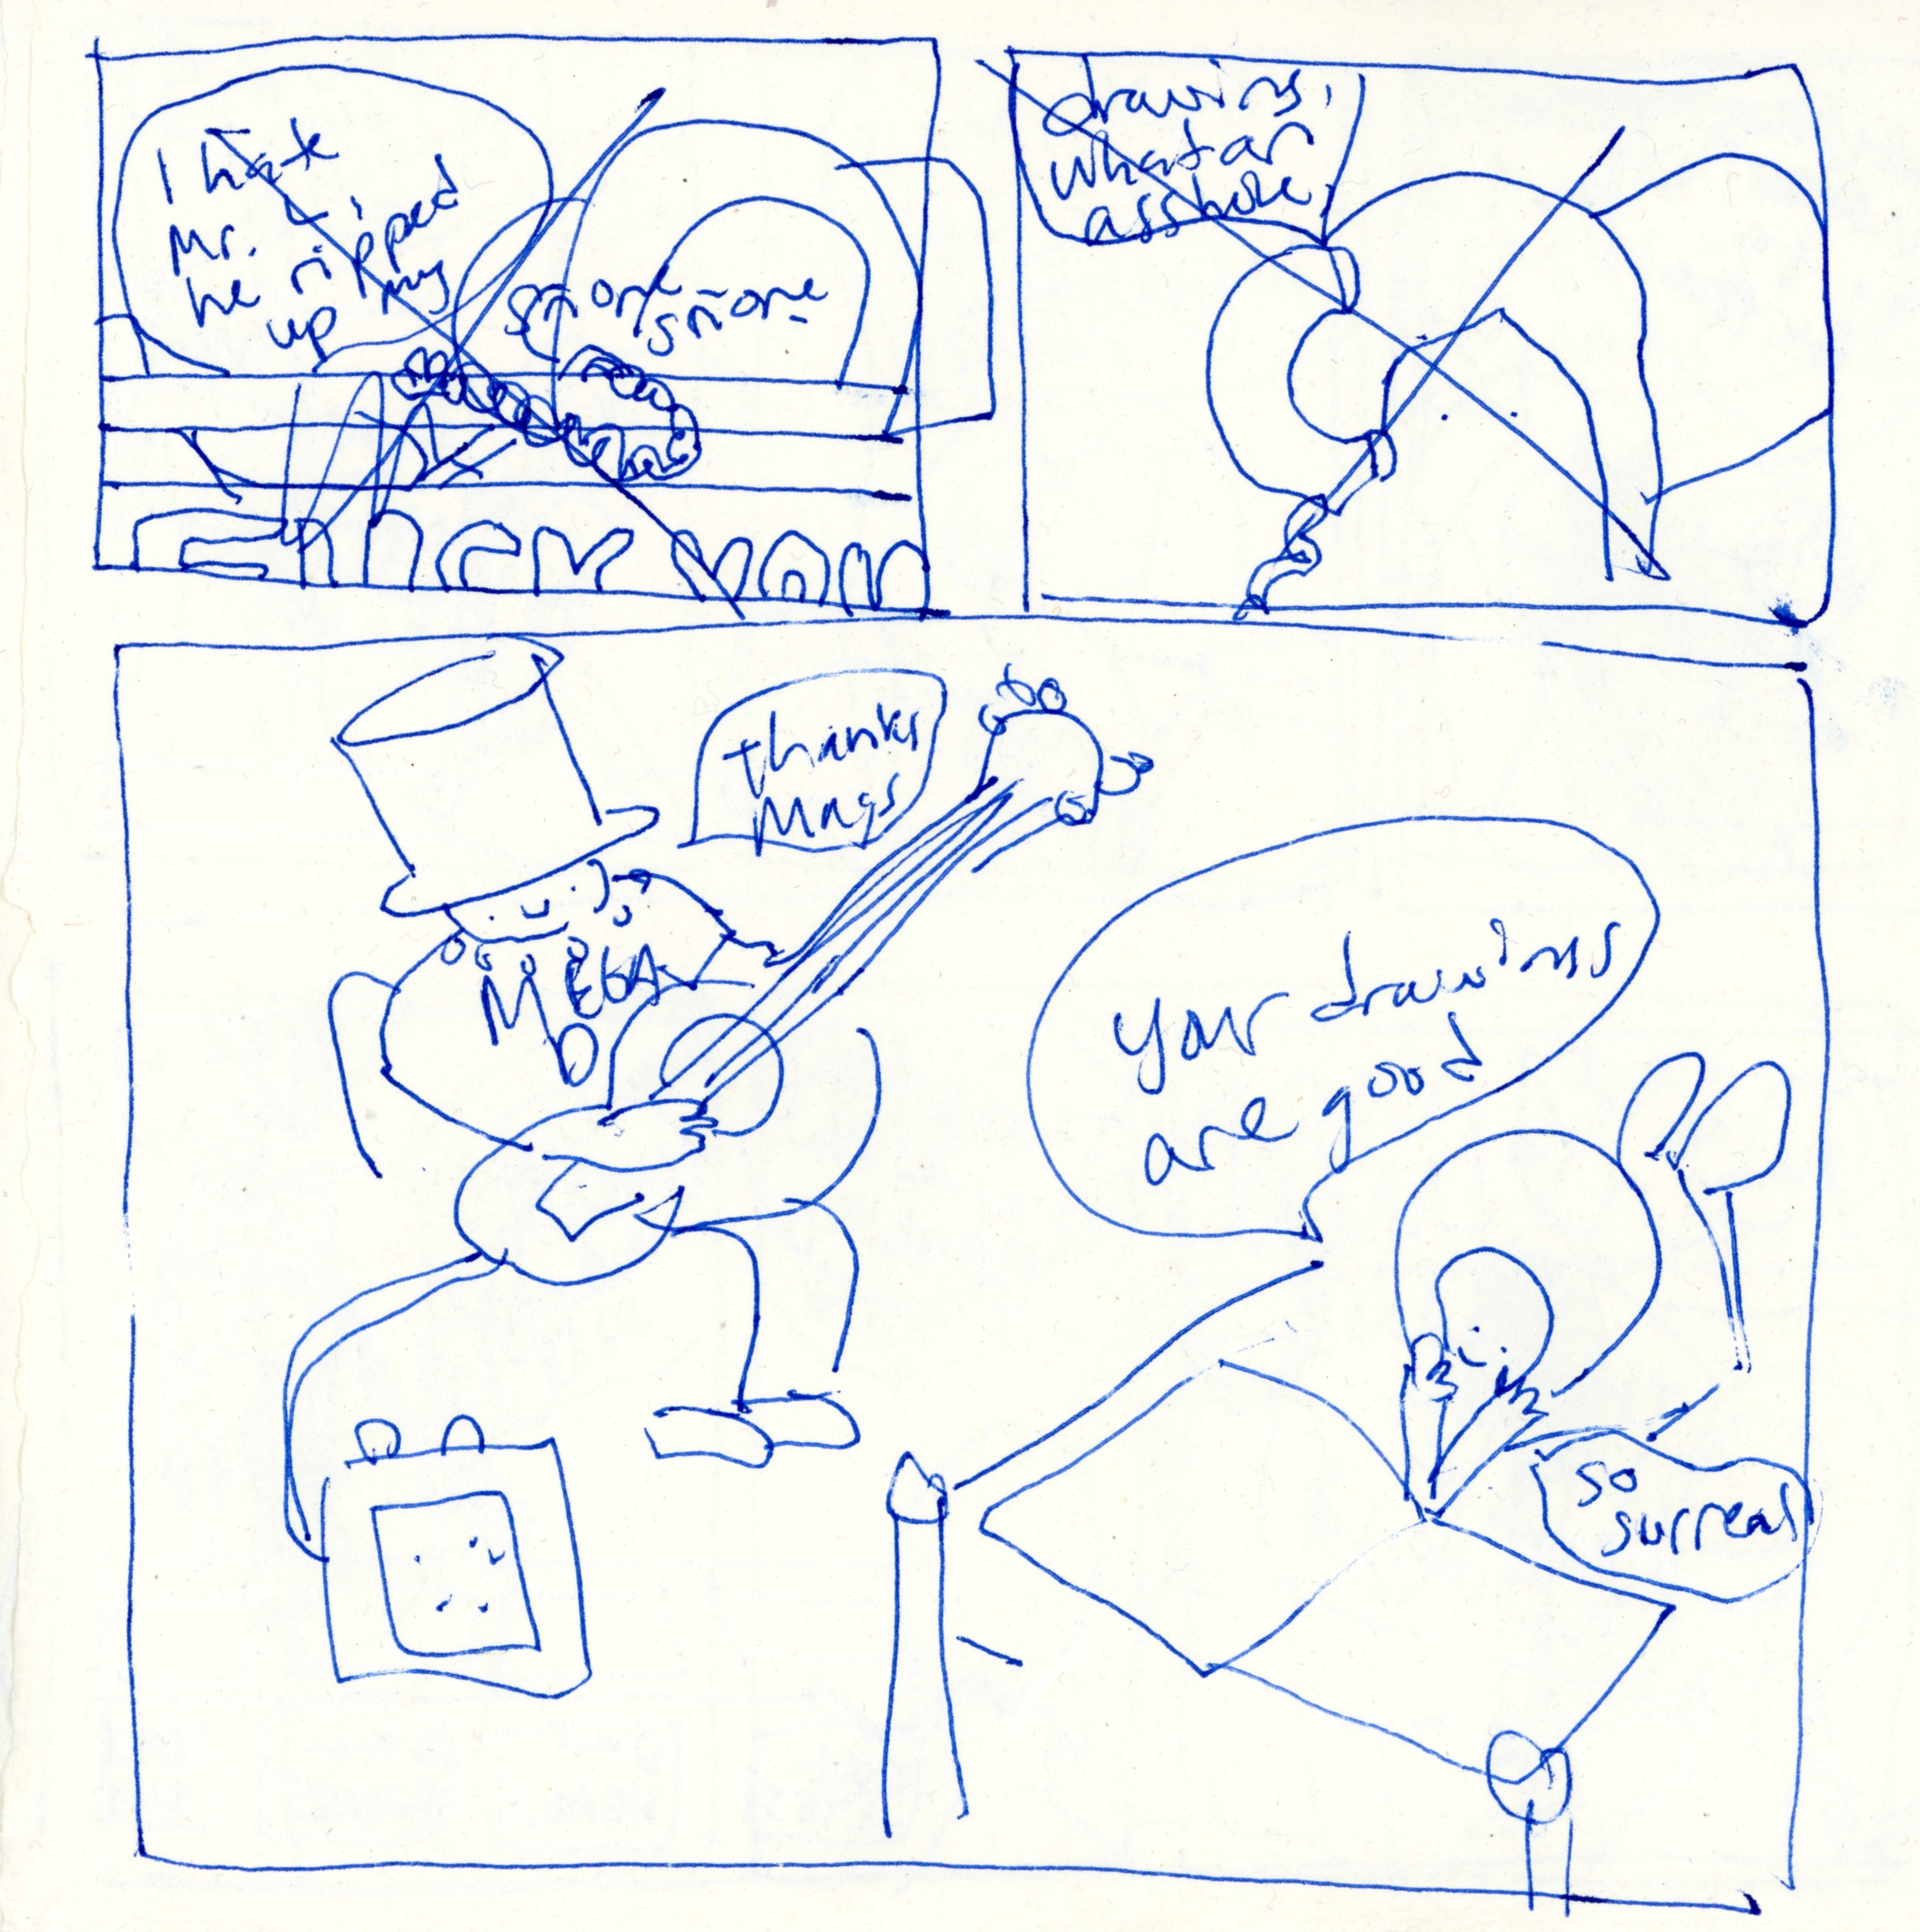 I hate
Mr.
he ripped
up my
smore
smore
drawings,
what an
asshole
thanks
Mags
MEGA
D
your drawings
are good
so
surreal